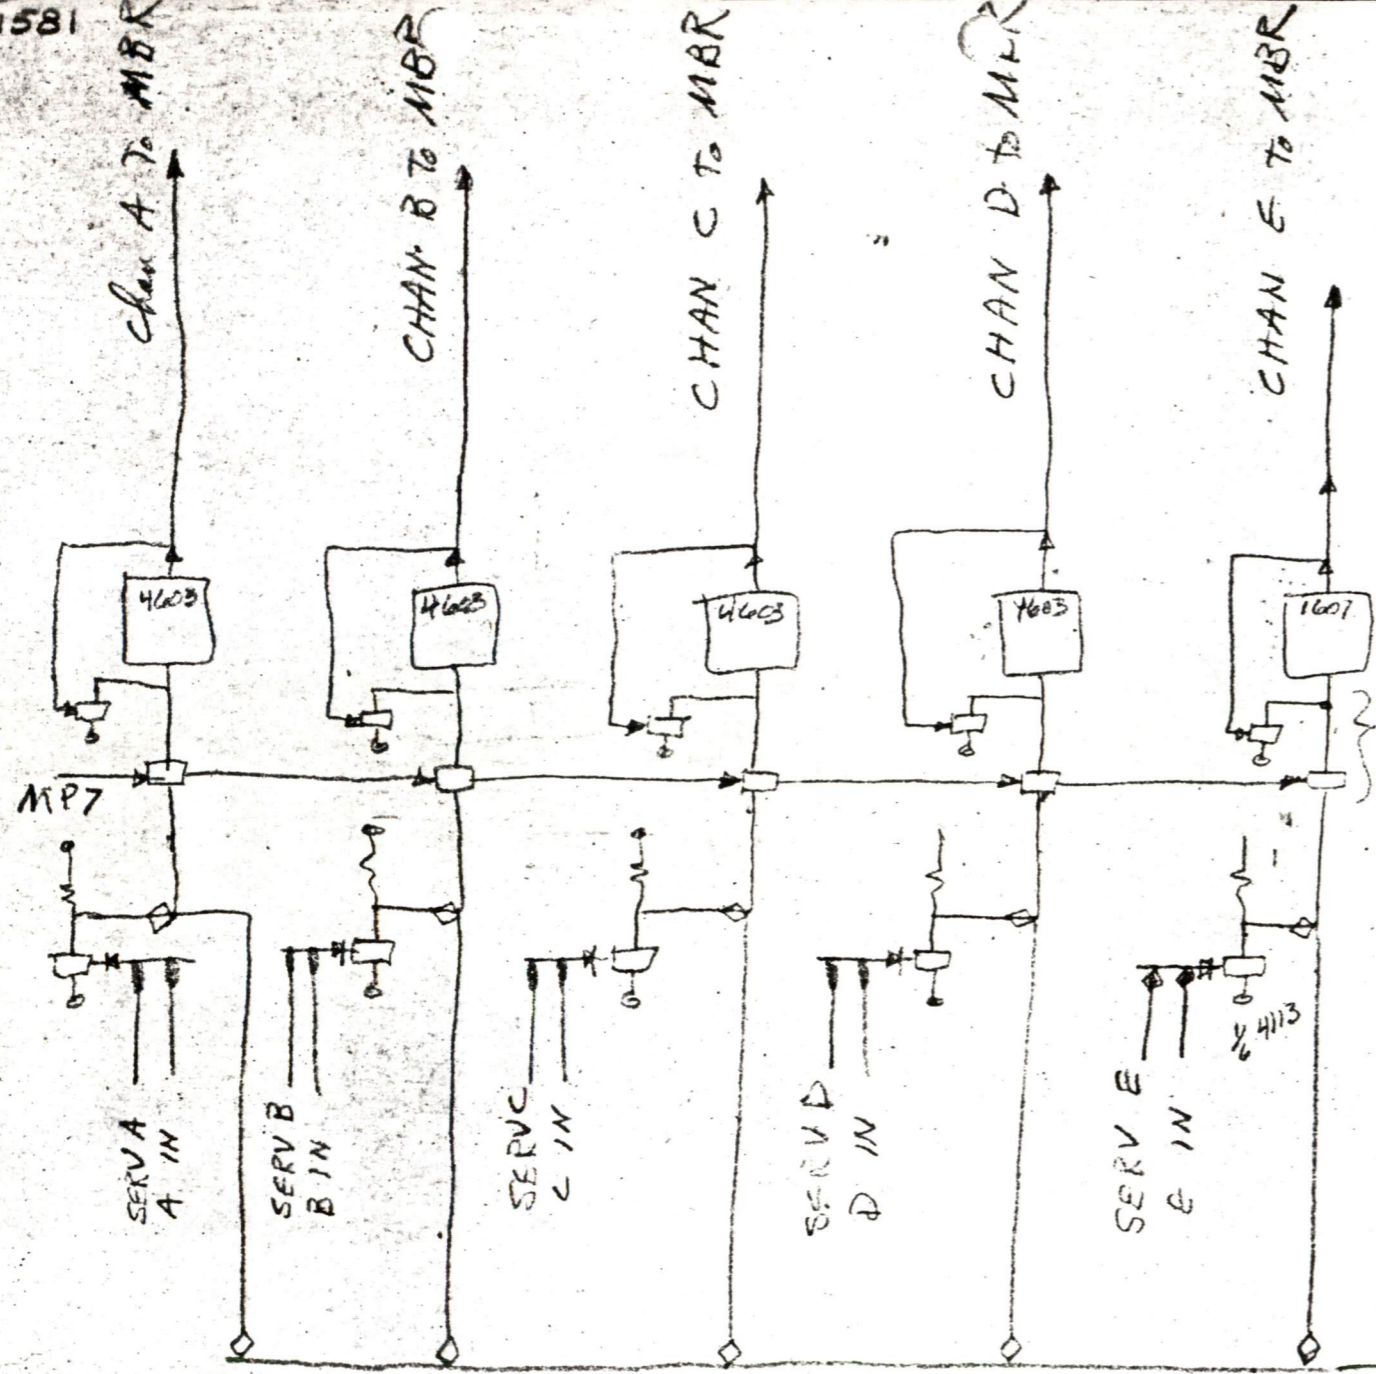 1581
Chan A To MBR
CHAN B To MBR
CHAN C To MBR
CHAN D to
CHAN E To MBR
4603
4603
4603
4603
1607
MP7
1/6 4113
SERV A
A IN
SERV B
B IN
SERV C
C IN
SERV D
D IN
SERV E
E IN